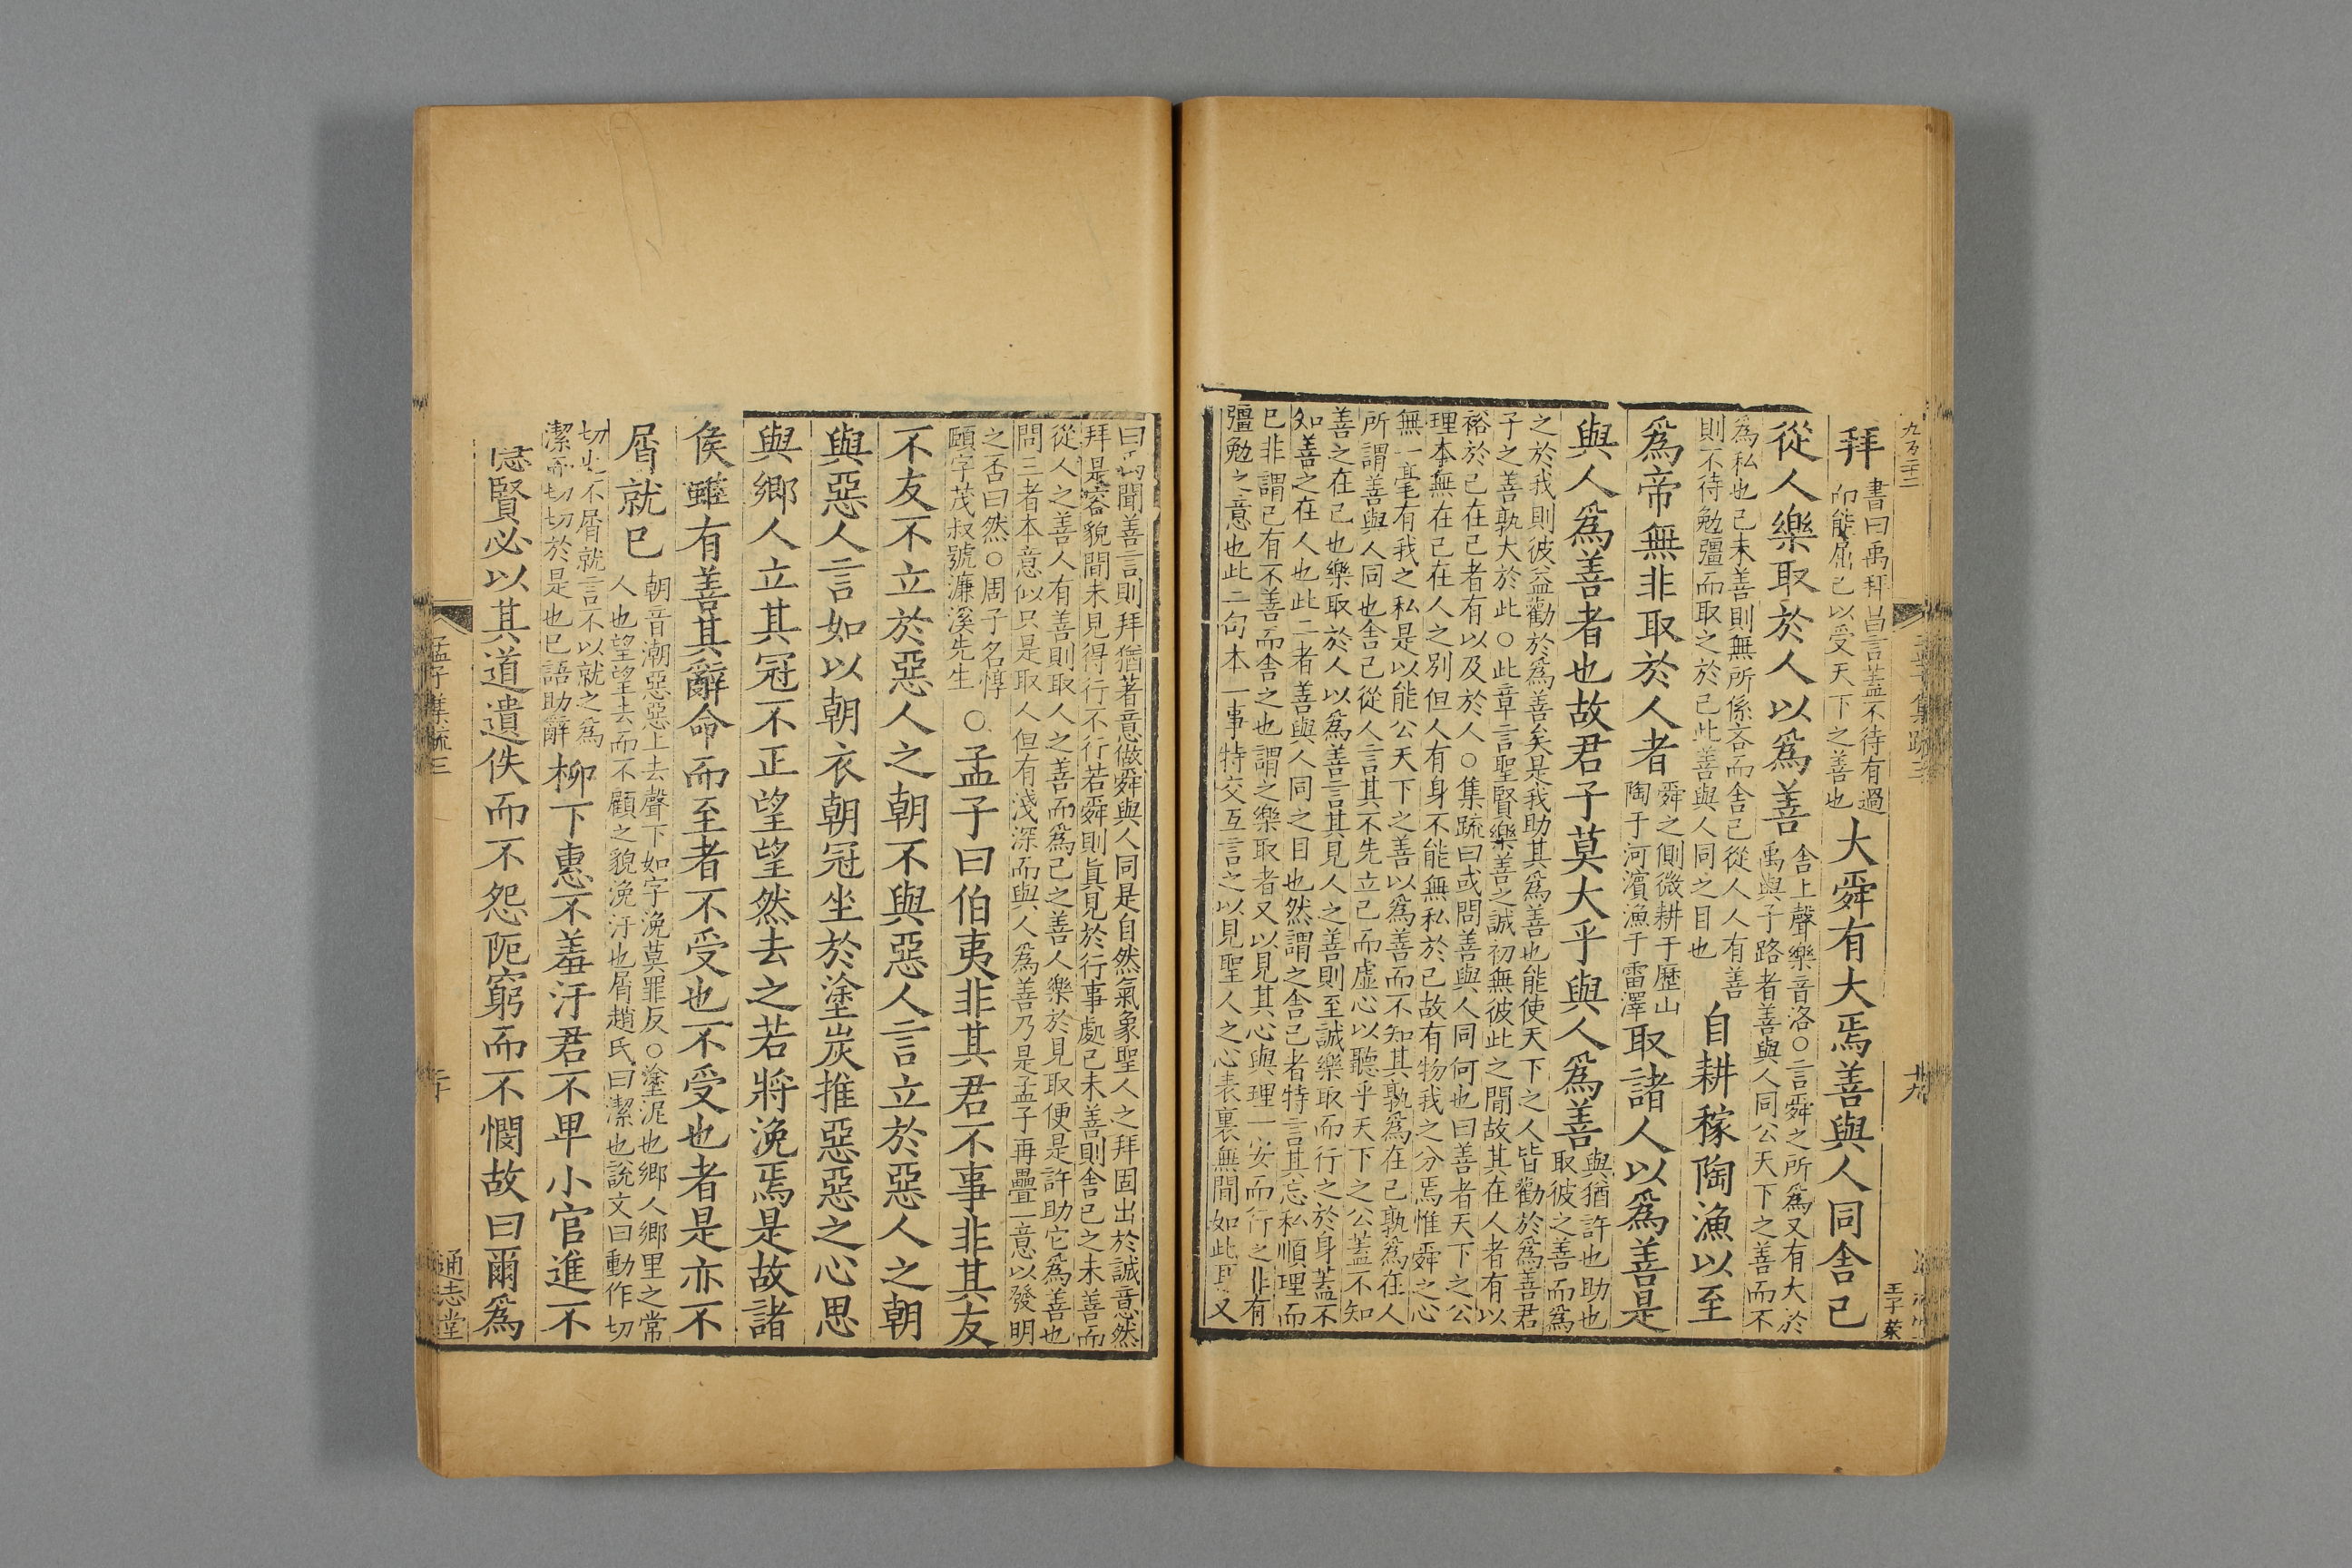 拜
書曰禹拜昌言蓋不待有過
而能屈己以受天下之善也
大舜有大焉善與人同舍己
從人樂取於人以爲善
舍上聲樂音洛○言舜之所爲又有大於
禹與子路者善與人同公天下之善而不
爲私也己未善則無所係吝而舍己從人人有善
則不待勉彊而取之於己此善與人同之目也
自耕稼陶漁以至
爲帝無非取於人者
舜之側微耕于歷山
陶于河濱漁于雷澤
取諸人以爲善是
與人爲善者也故君子莫大乎與人爲善
與猶許也助也
取彼之善而爲
之於我則彼益勸於爲善矣是我助其爲善也能使天下之人皆勸於爲善君
子之善孰大於此○此章言聖賢樂善之誠初無彼此之閒故其在人者有以
裕於己在己者有以及於人○集疏曰或問善與人同何也曰善者天下之公
理本無在己在人之別但人有身不能無私於己故有物我之分焉惟舜之心
無一毫有我之私是以能公天下之善以爲善而不知其孰爲在己孰爲在人
所謂善與人同也舍己從人言其不先立己而虛心以聽乎天下之公蓋不知
善之在己也樂取於人以爲善言其見人之善則至誠樂取而行之於身蓋不
知善之在人也此二者善與人同之目也然謂之舍己者特言其忘私順理而
已非謂己有不善而舍之也謂之樂取者又以見其心與理一安而行之非有
彊勉之意也此二句本一事特交互言之以見聖人之心表裏無間如此且又
王子荣
曰禹聞善言則拜猶著意做舜與人同是自然氣象聖人之拜固出於誠意然
拜是容貌間未見得行不行若舜則眞見於行事處己未善則舍己之未善而
從人之善人有善則取人之善而爲己之善人樂於見取便是許助它爲善也
問三者本意似只是取人但有淺深而與人爲善乃是孟子再疊一意以發明
之否曰然○周子名惇
頤字茂叔號濂溪先生
○孟子曰伯夷非其君不事非其友
不友不立於惡人之朝不與惡人言立於惡人之朝
與惡人言如以朝衣朝冠坐於塗炭推惡惡之心思
與鄉人立其冠不正望望然去之若將浼焉是故諸
侯雖有善其辭命而至者不受也不受也者是亦不
屑就已
朝音潮惡惡上去聲下如字浼莫罪反○塗泥也鄉人鄉里之常
人也望望去而不顧之貌浼汙也屑趙氏曰潔也說文曰動作切
切也不屑就言不以就之爲
潔而切切於是也已語助辭
柳下惠不羞汙君不卑小官進不
隱賢必以其道遺佚而不怨阨窮而不憫故曰爾爲
孟子集疏三
三十
通志堂